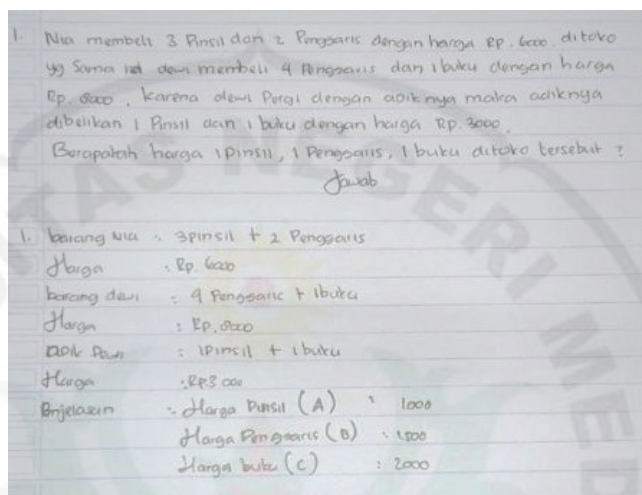 1. Nia membeli 3 Pinsil dan 2 Penggaris dengan harga Rp. 6000. ditoko
yg Sama dewi membeli 4 Penggaris dan 1 buku dengan harga
Rp. 8000. Karena dewi Pergi dengan adiknya maka adiknya
dibelikan 1 Pinsil dan 1 buku dengan harga Rp. 3000.
Berapakah harga 1 Pinsil, 1 Penggaris, 1 buku ditoko tersebut ?
Jawab
1. barang Nia : 3 pinsil + 2 Penggaris
Harga : Rp. 6000
barang dewi : 4 Penggaris + 1 buku
Harga : Rp. 8000
adik Dewi : 1 Pinsil + 1 buku
Harga : Rp. 3000
Harga Pinsil (A) : 1000
Harga Penggaris (B) : 1500
Harga buku (C) : 2000
NEGERI